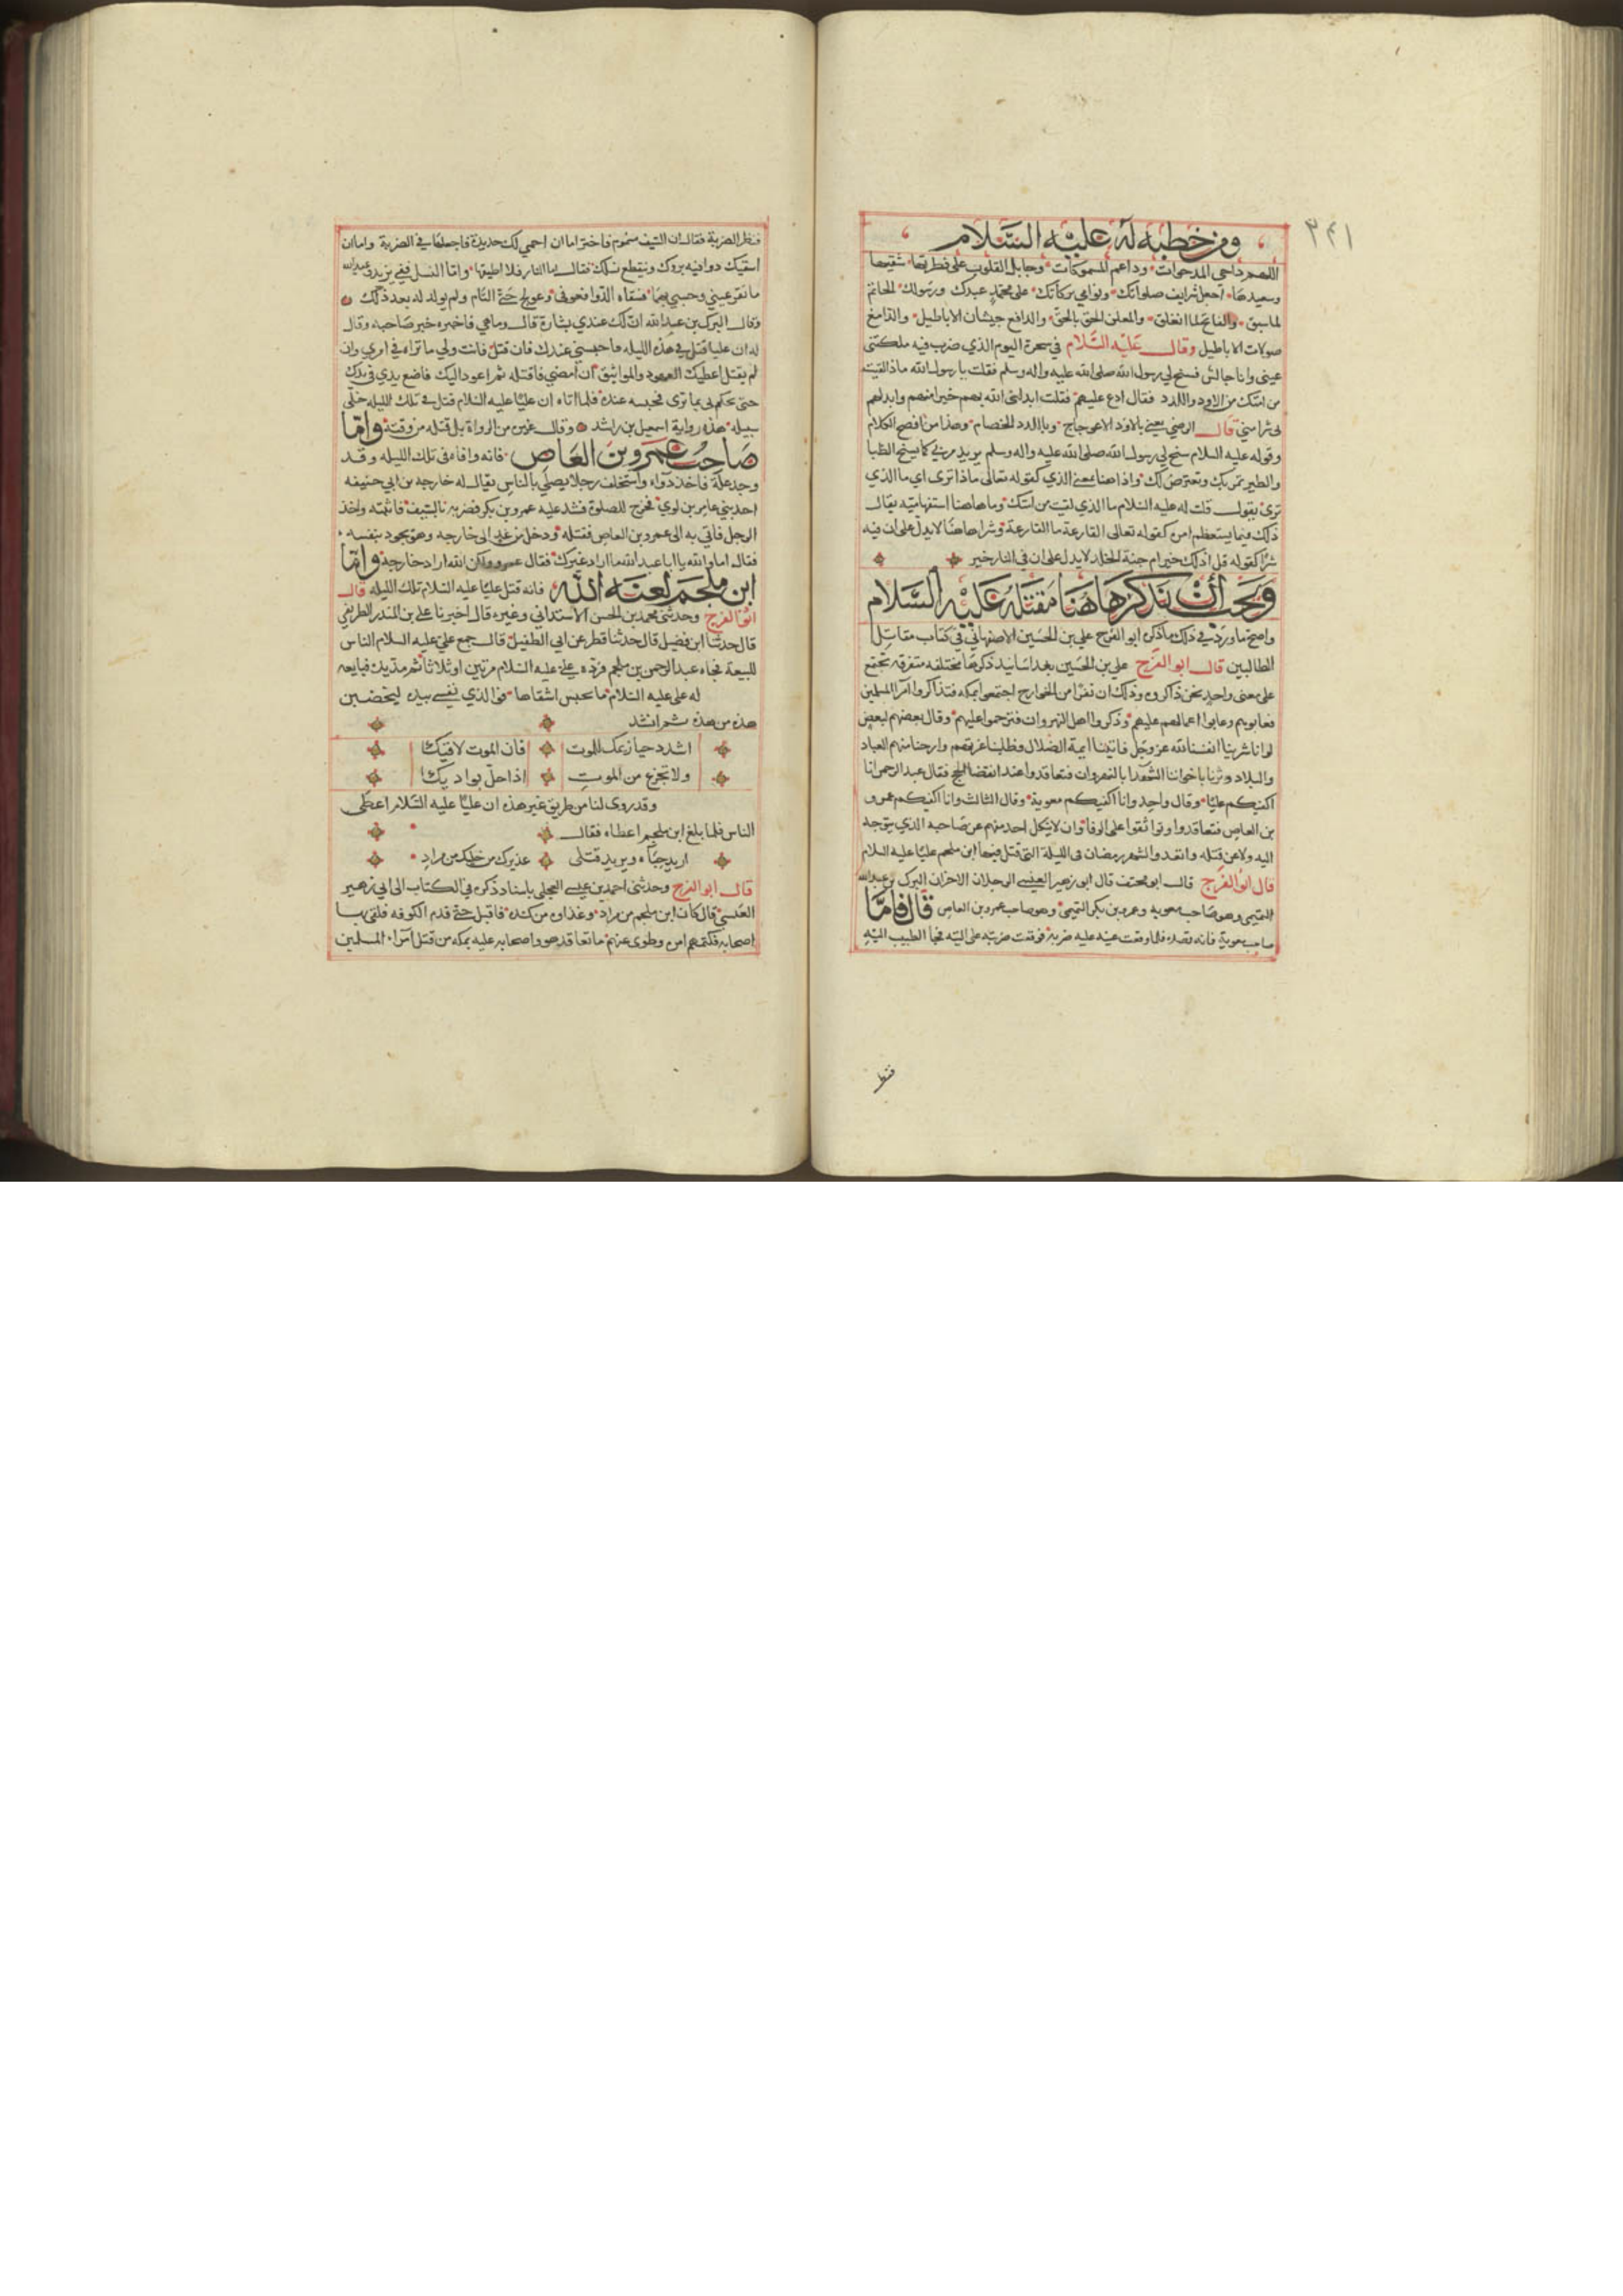 ٣٤١
ومن خطبه له عليه السلام
اللهم داحى المدحوات وداعم المسموكات وجابل القلوب على فطرتها شقيها
وسعيدها اجعل شرايف صلواتك ونوامي بركاتك على محمد عبدك ورسولك الخاتم
لما سبق والفاتح لما انغلق والمعلن الحق بالحق والدافع جيشات الاباطيل والدامغ
صولات الاباطيل وقال عليه السلام في سحرة اليوم الذي ضرب فيه ملكتني
عيني وانا جالس فسنح لي رسول الله صلى الله عليه واله وسلم فقلت يا رسول الله ماذا لقيت
من امتك من الاود واللدد فقال ادع عليهم فقلت ابدلني الله بهم خيرا منهم وابدلهم
بى شرا مني قال الرضي يعني بالاود الاعوجاج وباللدد الخصام وهذا من افصح الكلام
وقوله عليه السلام سنح لي رسول الله صلى الله عليه واله وسلم يريد مر بي كما يسنح الظبا
والطير يمر بك ويعترض لك وذا هنا بمعنى الذي كقوله تعالى ماذا ترى اي ما الذي
ترى يقول قلت له عليه السلام ما الذي لقيت من امتك وما هاهنا استفهاميه يقال
ذلك فيما يستعظم امره كقوله تعالى القارعة ما القارعة وشرا هاهنا لا يدل على ان فيه
شرا كقوله قل اذلك خير ام جنة الخلد لا يدل على ان في النار خير
ويجب أن نذكر هاهنا مقتله عليه السلام
واصح ما ورد في ذلك ما ذكره ابو الفرج علي بن الحسين الاصفهاني في كتاب مقاتل
الطالبين قال ابو الفرج علي بن الحسين بعد اسانيد ذكرها مختلفه متفرقه تجتمع
على معنى واحد نحن ذاكروه وذلك ان نفرا من الخوارج اجتمعوا بمكه فتذاكروا امر المسلمين
فعابوهم وعابوا اعمالهم عليهم وذكروا اهل النهروان فترحموا عليهم وقال بعضهم لبعض
لو انا شرينا انفسنا لله عز وجل فاتينا ايمة الضلال وطلبنا غرتهم وارحنا منهم العباد
والبلاد وثرنا باخواننا الشهدا بالنهروان فتعاقدوا عند انقضا الحج فقال عبد الرحمن انا
اكفيكم عليا وقال واحد وانا اكفيكم معوية وقال الثالث وانا اكفيكم عمرو
بن العاص فتعاقدوا وتواثقوا على الوفا وان لا ينكل احد منهم عن صاحبه الذي يتوجه
اليه ولا عن قتله واتعدوا لشهر رمضان في الليلة التي قتل فيها ابن ملجم عليا عليه السلام
قال ابو الفرج قال ابو مخنف قال ابو زهير العبسي الرجلان الاخران البرك بن عبدالله
التميمي وهو صاحب معويه وعمرو بن بكر التميمي وهو صاحب عمرو بن العاص قال فاما
صاحب معوية فانه قصده فلما وقعت عينه عليه ضربه فوقعت ضربته على اليته فجا الطبيب اليه
فنظر
فنظر الضربة فقال ان السيف مسموم فاختر اما ان احمي لك حديدة فاجعلها في الضربة واما ان
اسقيك دوا فيه بروك وينقطع نسلك فقال اما النار فلا اطيقها واما النسل ففي يزيد وعبدالله
ما تقر عيني وحسبي بهما فسقاه الدوا فعوفي وعولج حتى التام ولم يولد له بعد ذلك
وقال البرك بن عبد الله ان لك عندي بشارة قال وما هي فاخبره خبر صاحبه وقال
له ان عليا قتل في هذه الليله فاحبسني عندك فان قتل فانت ولي ما تراه في امري وان
لم يقتل اعطيك العهود والمواثيق ان امضي فاقتله ثم اعود اليك فاضع يدي في يدك
حتى تحكم لى بما ترى فحبسه عنده فلما اتاه ان عليا عليه السلام قتل في تلك الليله خلى
سبيله هذه رواية اسمعيل بن راشد وقال غيره من الرواة بل قتله من وقته واما
صاحب عمرو بن العاص فانه وافاه في تلك الليله وقد
وجد علة فاخذ دواء واستخلف رجلا يصلي بالناس يقال له خارجه بن ابي حنيفه
احد بني عامر بن لوي فخرج للصلوة فشد عليه عمرو بن بكر فضربه بالسيف فاثبته واخذ
الرجل فاتي به الى عمرو بن العاص فقتله ودخل من غد الى خارجه وهو يجود بنفسه
فقال اما والله يا ابا عبد الله ما اراد غيرك فقال عمرو ولكن الله اراد خارجه واما
ابن ملجم لعنه الله فانه قتل عليا عليه السلام تلك الليله قال
ابو الفرج وحدثني محمد بن الحسن الاشنداني وغيره قال اخبرنا علي بن المنذر الطريفي
قال حدثنا ابن فضيل قال حدثنا فطر عن ابي الطفيل قال جمع علي عليه السلام الناس
للبيعة فجاه عبد الرحمن بن ملجم فرده علي عليه السلام مرتين او ثلاثا ثم مد يده فبايعه
له على عليه السلام ما يحبس اشقاها فوالذي نفسي بيده ليخضبن
هذه من هذه ثم انشد
اشدد حيازيمك للموت فان الموت لاقيكا
ولا تجزع من الموت اذا حل بواديكا
وقد روى لنا من طريق غير هذه ان عليا عليه السلام اعطى
الناس فلما بلغ ابن ملجم اعطاه فقال
اريد حباءه ويريد قتلى عذيرك من خليلك من مراد
قال ابو الفرج وحدثني احمد بن عيسى العجلي باسناد ذكره في الكتاب الى ابي زهير
العبسي قال كان ابن ملجم من مراد وعداده من كنده فاقبل حتى قدم الكوفه فلقي بها
اصحابه فكتمهم امره وطوى عنهم ما تعاقد هو واصحابه عليه بمكه من قتل امراء المسلمين